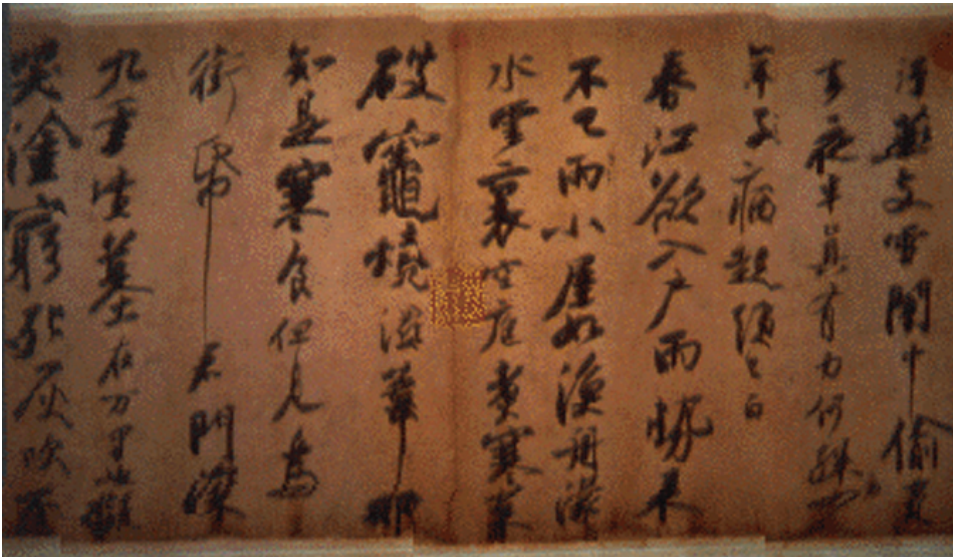 污燕支雪闇中偷負
去夜半真有力何殊少
年子病起須已白
春江欲入戶雨勢來
不已雨小屋如漁舟濛
水雲裏空庖煮寒菜
破竈燒濕葦那
知是寒食但見烏
銜帋君門深
九重墳墓在万里也擬
哭塗窮死灰吹不